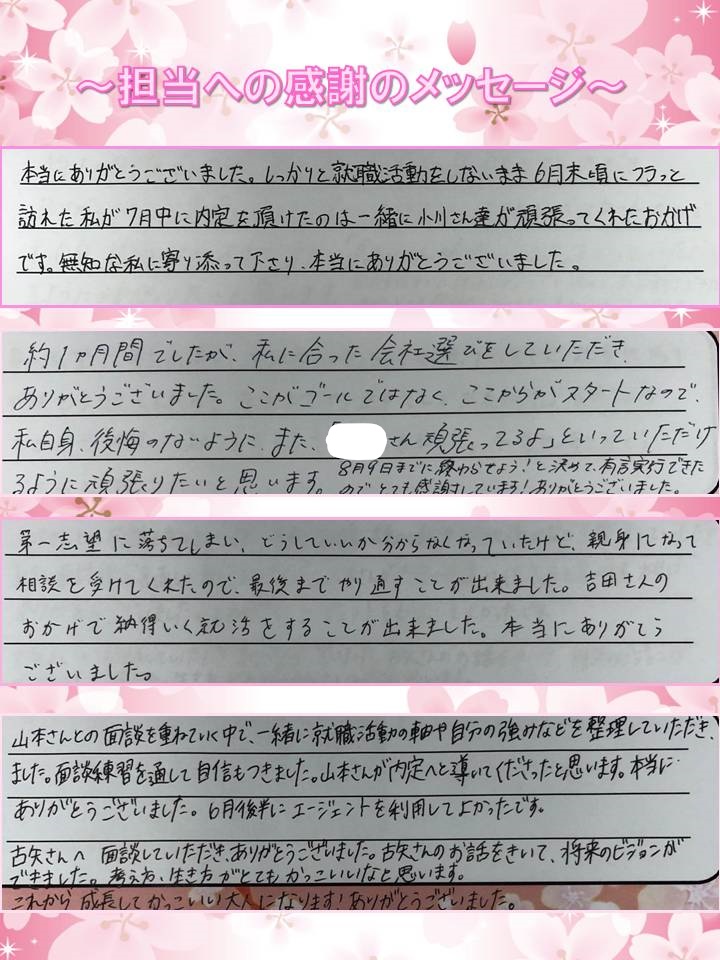 ～担当への感謝のメッセージ～
本当にありがとうございました。しっかりと就職活動をしないまま6月末頃にフラっと
訪れた私が7月中に内定を頂けたのは一緒に小川さん達が頑張ってくれたおかげ
です。無知な私に寄り添って下さり、本当にありがとうございました。
約1ヵ月間でしたが、私に合った会社選びをしていただき、
ありがとうございました。ここがゴールではなく、ここからがスタートなので、
私自身、後悔のないように、また、「 さん頑張ってるよ」といっていただけ
るように頑張りたいと思います。
8月9日までに終わらせよう!と決めて、有言実行できた
のでとても感謝しています!ありがとうございました。
第一志望に落ちてしまい、どうしていいか分からなくなっていたけど、親身になって
相談を受けてくれたので、最後までやり通すことが出来ました。吉田さんの
おかげで納得いく就活をすることが出来ました。本当にありがとう
ございました。
山本さんとの面談を重ねていく中で、一緒に就職活動の軸や自分の強みなどを整理していただき、
ました。面談練習を通して自信もつきました。山本さんが内定へと導いてくださったと思います。本当に
ありがとうございました。6月後半にエージェントを利用してよかったです。
古矢さんへ 面談していただき、ありがとうございました。古矢さんのお話をきいて、将来のビジョンが
できました。考え方、生き方がとてもかっこいいなと思います。
これから成長してかっこいい大人になります!ありがとうございました。